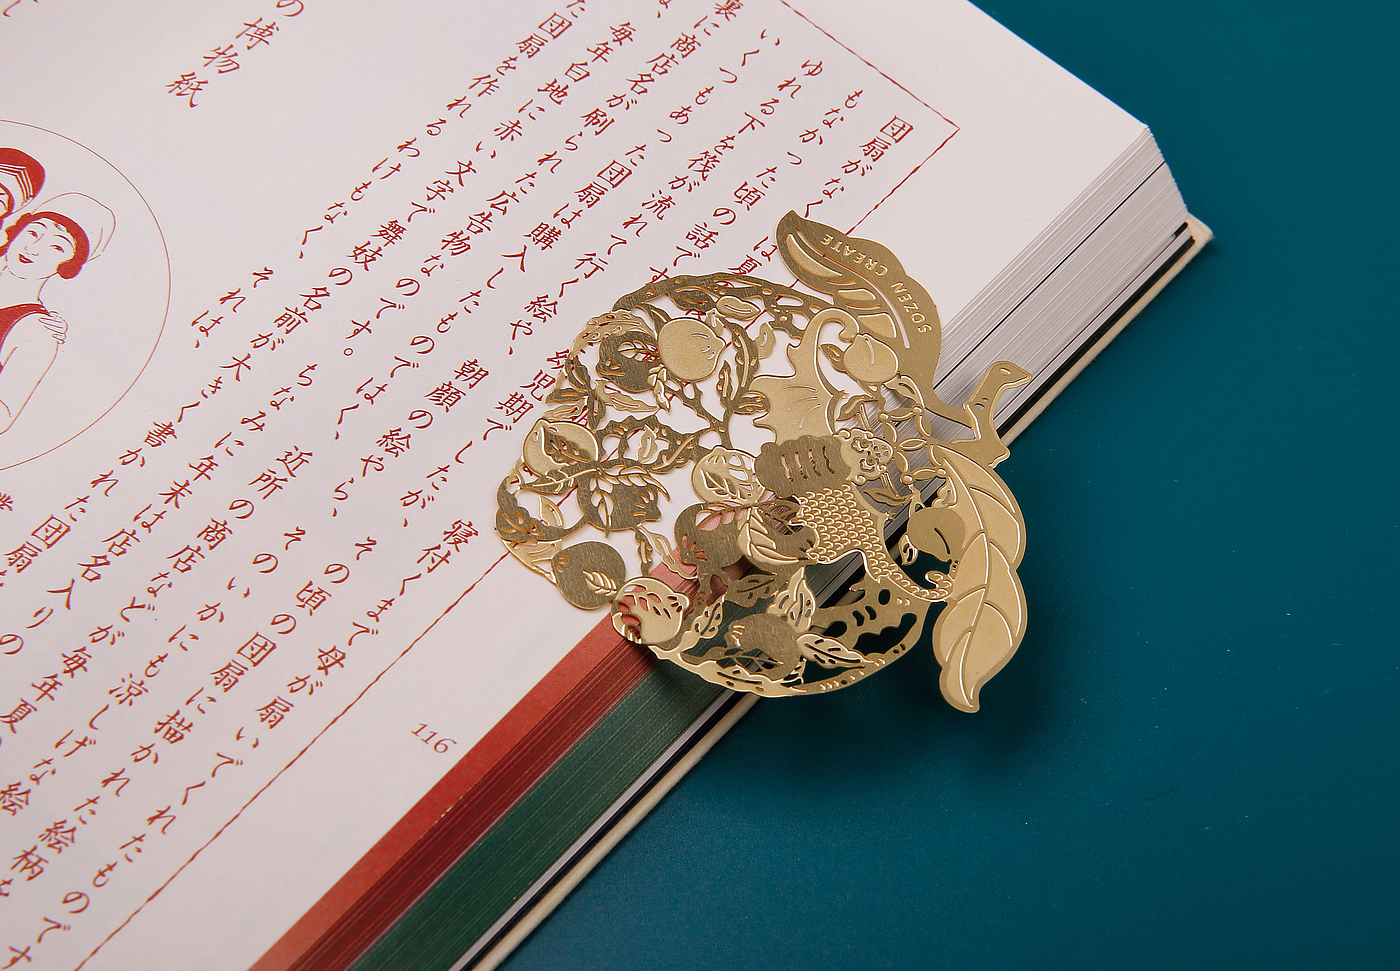 団扇がなく
は夏
寝付くまで母が扇いでくれたものです
もなかった頃の話です
幼児期でしたが、その頃の団扇に描かれた絵柄を
ゆれる下を筏が流れて行く絵や、朝顔の絵やら、そのいかにも涼しげな絵
いくつもあった団扇は購入したものではく、近所の商店などが毎年夏、
裏に商店名が刷られた広告物なのです。ちなみに年末は店名入りの
毎年白地に赤い文字で舞妓の名前が大きく書かれた団扇
た団扇を作れるわけもなく、それは、
の博物紙
116
SOZEN CREATE